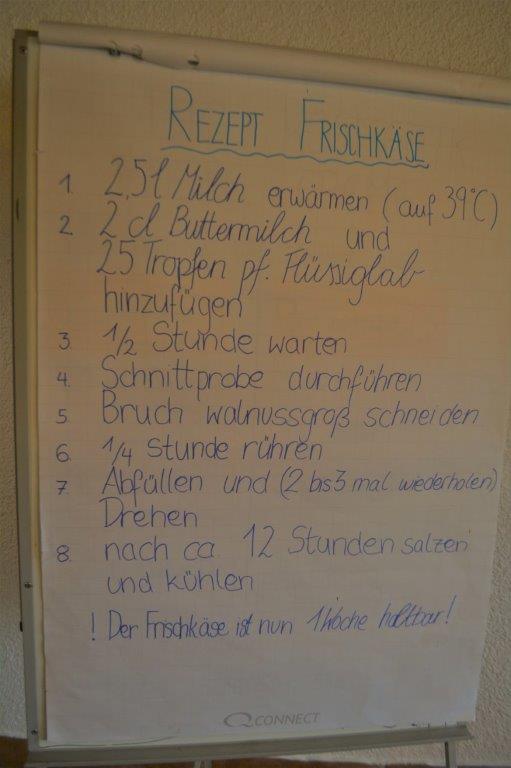 REZEPT FRISCHKÄSE
1. 2,5 l Milch erwärmen (auf 39°C)
2. 2 dl Buttermilch und
25 Tropfen pf. Flüssiglab
hinzufügen
3. 1/2 Stunde warten
4. Schnittprobe durchführen
5. Bruch walnussgroß schneiden
6. 1/4 Stunde rühren
7. Abfüllen und (2 bis 3 mal wiederholen)
Drehen
8. nach ca. 12 Stunden salzen
und kühlen
! Der Frischkäse ist nun 1 Woche haltbar!
Q CONNECT